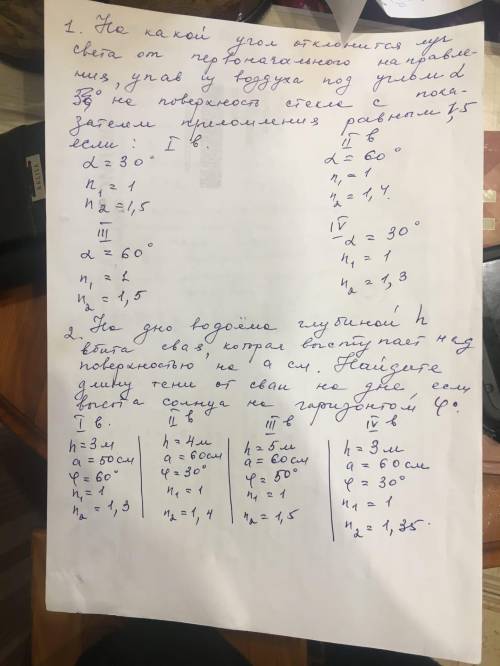 1. На какой угол отклонится луч
света от первоначального направле-
ния, упав из воздуха под углом α
на поверхность стекла с пока-
зателем преломления равным 1,5
если: I в.
α = 30°
n1 = 1
n2 = 1,5
II в
α = 60°
n1 = 1
n2 = 1,4.
III
α = 60°
n1 = 1
n2 = 1,5
IV
α = 30°
n1 = 1
n2 = 1,3
2. На дно водоёма глубиной h
вбита свая, которая выступает над
поверхностью на a см. Найдите
длину тени от сваи на дне, если
высота солнца на горизонтом φ°.
I в.
h = 3 м
a = 50 см
φ = 60°
n1 = 1
n2 = 1,3
II в
h = 4 м
a = 60 см
φ = 30°
n1 = 1
n2 = 1,4
III в
h = 5 м
a = 60 см
φ = 50°
n1 = 1
n2 = 1,5
IV в
h = 3 м
a = 60 см
φ = 30°
n1 = 1
n2 = 1,35.